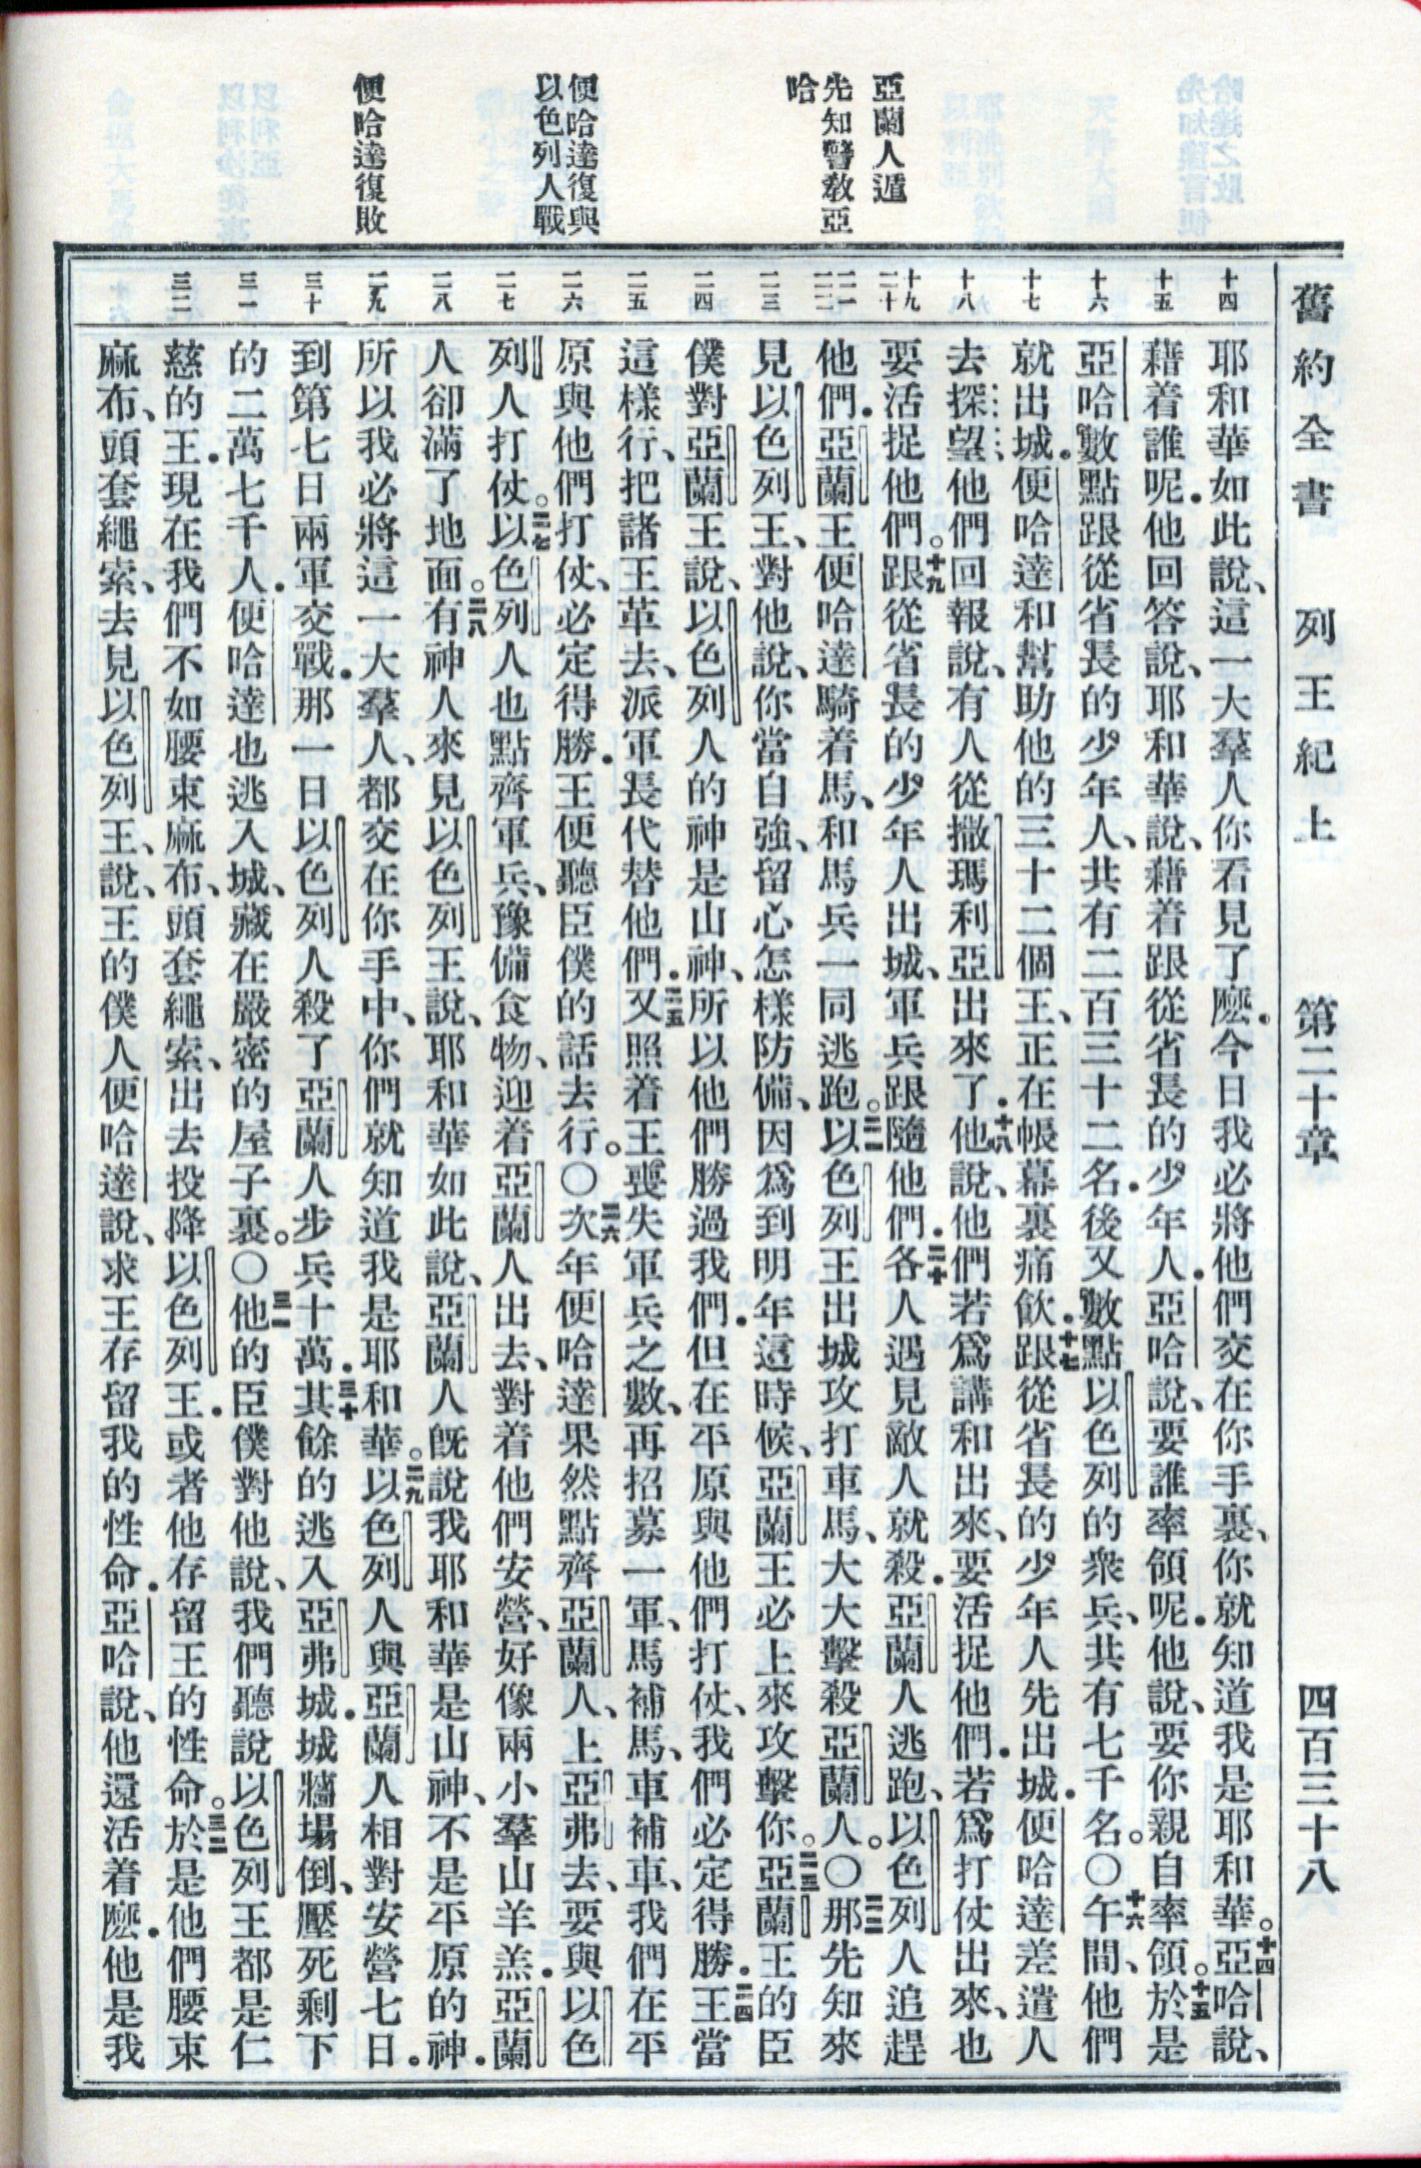 舊約全書　列王紀上　第二十章　四百三十八
亞蘭人遁
先知警教亞
哈
便哈達復與
以色列人戰
便哈達復敗
十四
耶和華如此說、這一大羣人你看見了麽.今日我必將他們交在你手裏、你就知道我是耶和華。十四亞哈說、
十五
藉着誰呢.他回答說、耶和華說、藉着跟從省長的少年人.亞哈說、要誰率領呢.他說、要你親自率領。十五於是
十六
亞哈數點跟從省長的少年人、共有二百三十二名.後又數點以色列的衆兵、共有七千名。〇十六午間、他們
十七
就出城.便哈達和幫助他的三十二個王、正在帳幕裏痛飲.十七跟從省長的少年人先出城.便哈達差遣人
十八
去探望他們回報說、有人從撒瑪利亞出來了.十八他說、他們若爲講和出來、要活捉他們.若爲打仗出來、也
十九
二十
要活捉他們。十九跟從省長的少年人出城、軍兵跟隨他們.二十各人遇見敵人就殺.亞蘭人逃跑、以色列人追趕
二一
二二
他們.亞蘭王便哈達騎着馬、和馬兵一同逃跑。二一以色列王出城攻打車馬、大大擊殺亞蘭人。〇二二那先知來
二三
見以色列王、對他說、你當自強、留心怎樣防備、因爲到明年這時候、亞蘭王必上來攻擊你。二三亞蘭王的臣
二四
僕對亞蘭王說、以色列人的神是山神、所以他們勝過我們.但在平原與他們打仗、我們必定得勝.二四王當
二五
這樣行、把諸王革去、派軍長代替他們.二五又照着王喪失軍兵之數、再招募一軍、馬補馬、車補車、我們在平
二六
原與他們打仗、必定得勝.王便聽臣僕的話去行。〇二六次年便哈達果然點齊亞蘭人、上亞弗去、要與以色
二七
列人打仗。二七以色列人也點齊軍兵、豫備食物、迎着亞蘭人出去、對着他們安營、好像兩小羣山羊羔.亞蘭
二八
人卻滿了地面。二八有神人來見以色列王說、耶和華如此說、亞蘭人既說我耶和華是山神、不是平原的神.
二九
所以我必將這一大羣人、都交在你手中、你們就知道我是耶和華。二九以色列人與亞蘭人相對安營七日。
三十
到第七日兩軍交戰.那一日以色列人殺了亞蘭人步兵十萬.三十其餘的逃入亞弗城.城牆塲倒、壓死剩下
三一
的二萬七千人.便哈達也逃入城、藏在嚴密的屋子裏。〇三一他的臣僕對他說、我們聽說以色列王都是仁
三二
慈的王.現在我們不如腰束麻布、頭套繩索、出去投降以色列王.或者他存留王的性命。三二於是他們腰束
麻布、頭套繩索、去見以色列王、說、王的僕人便哈達說、求王存留我的性命.亞哈說、他還活着麽.他是我